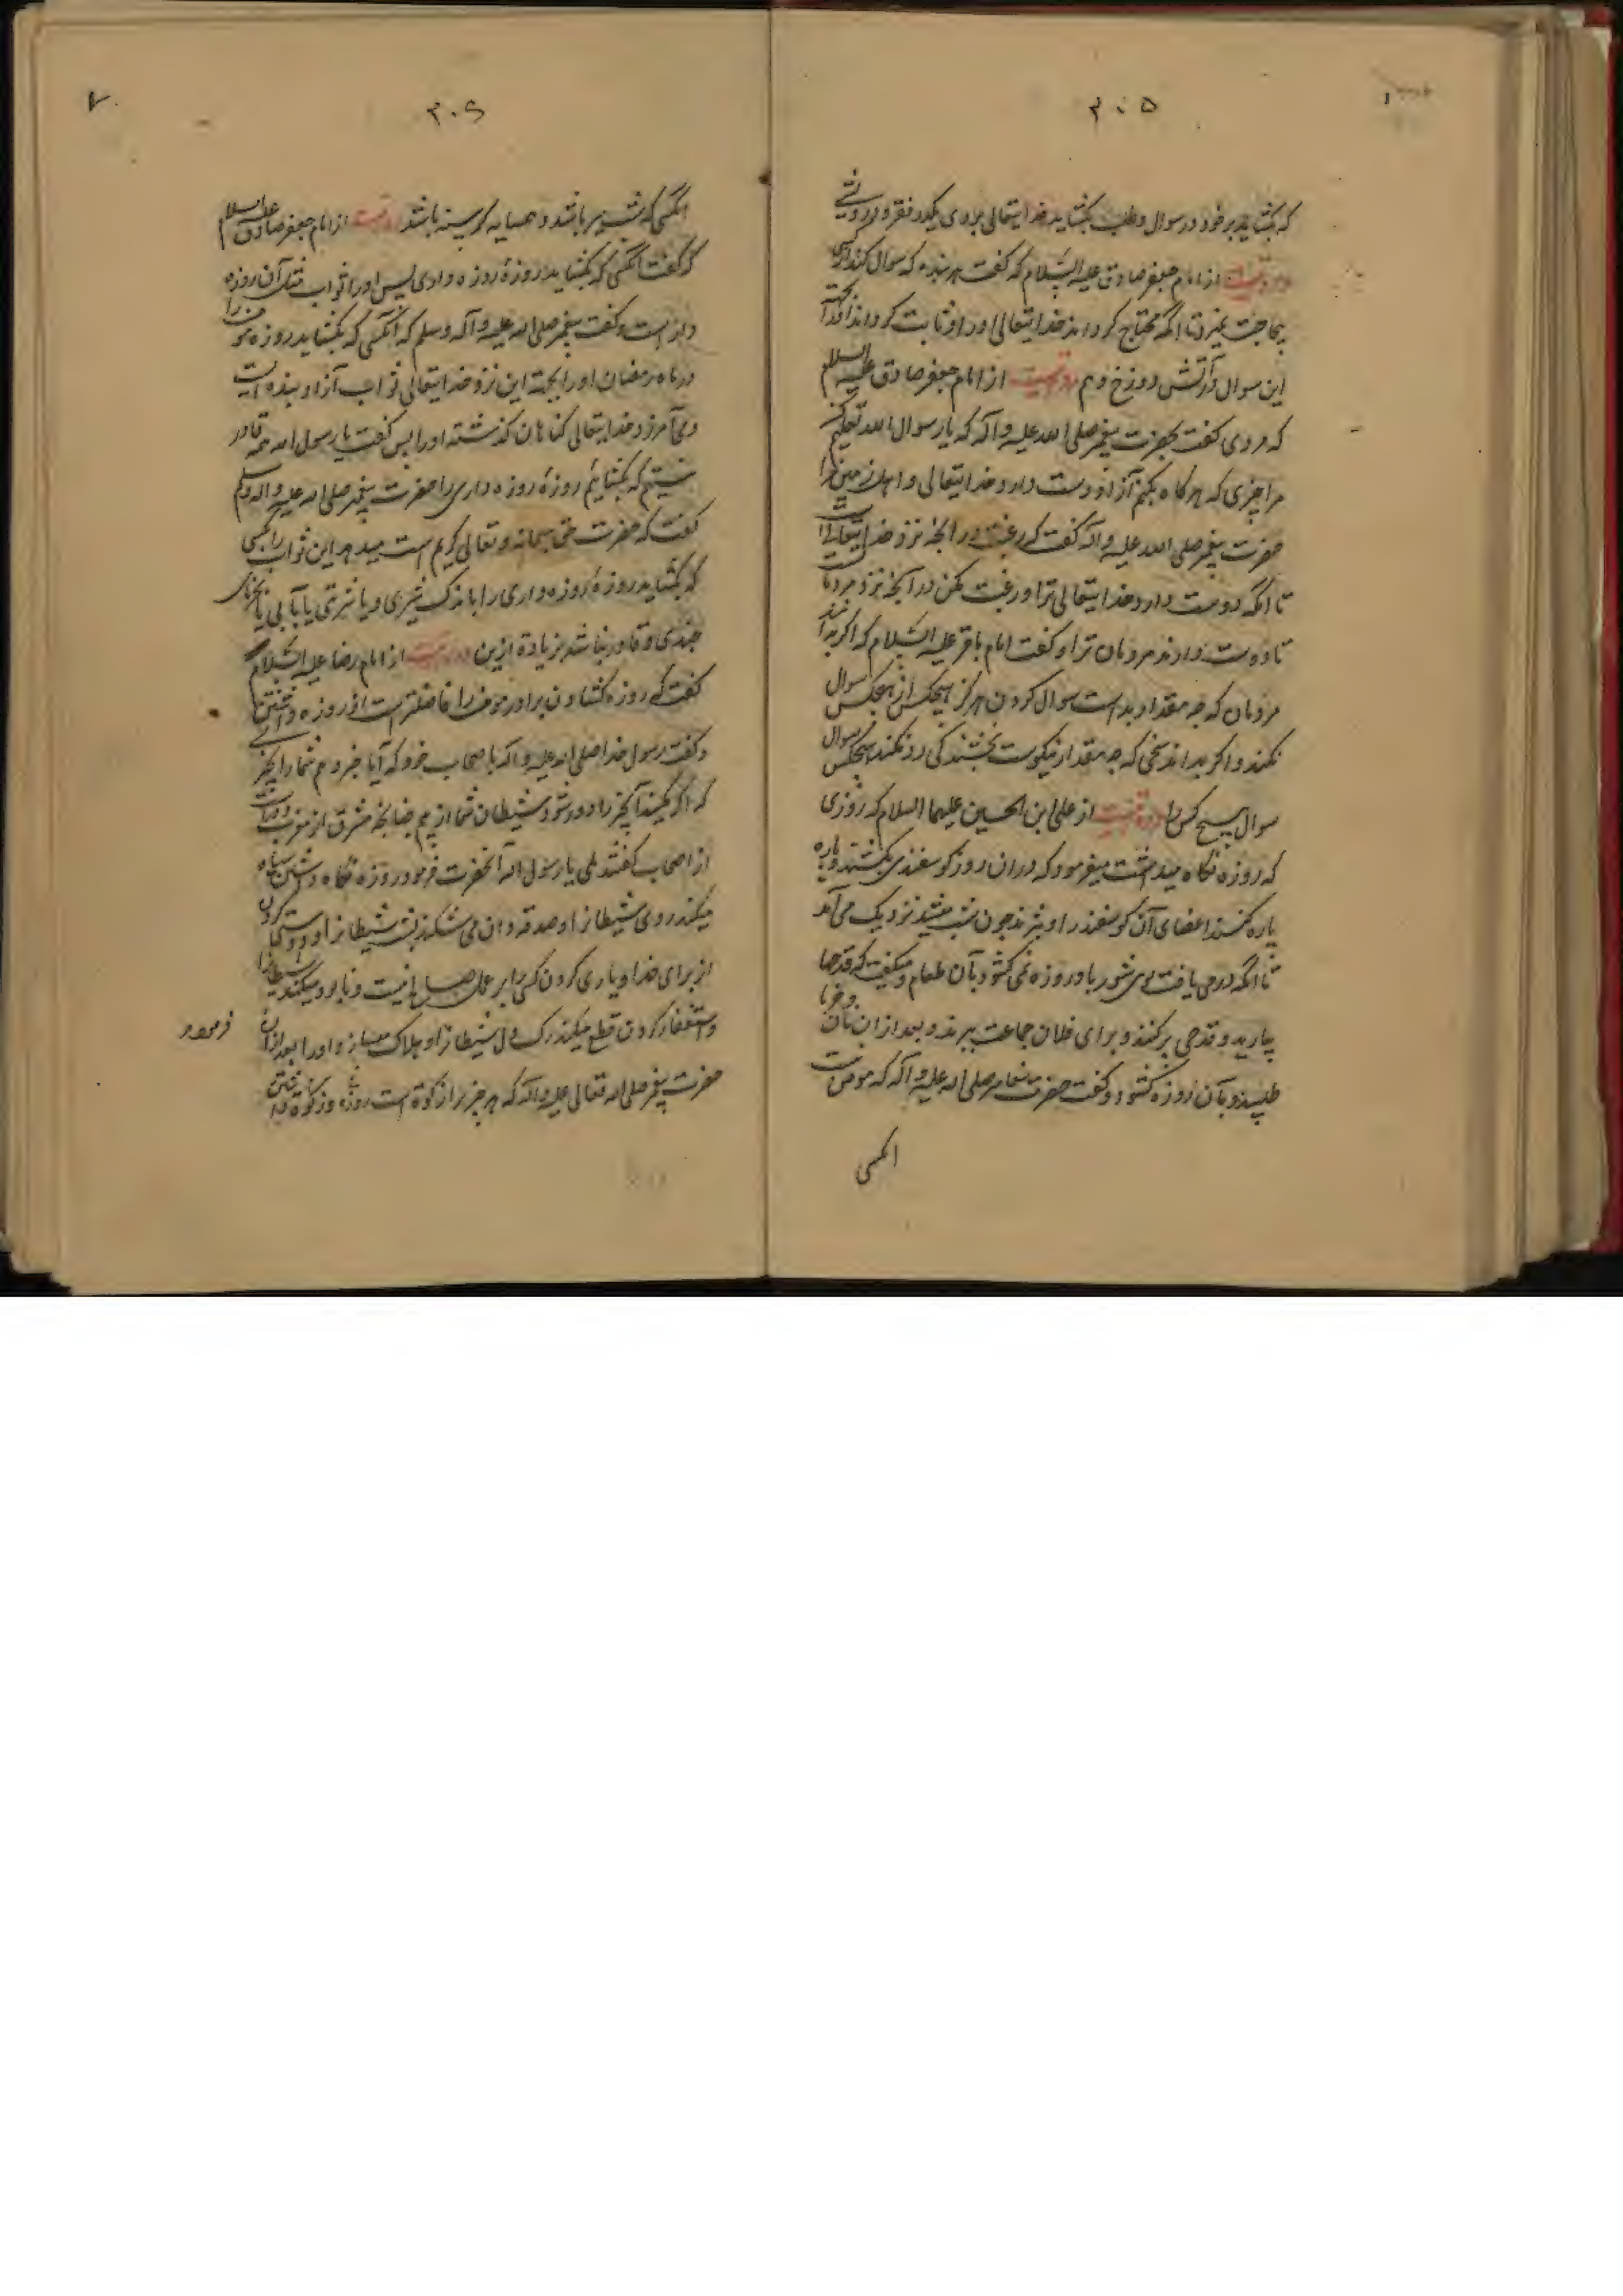 ۳۰۵
که بکشاید بر خود در سوال و طلب بکشاید خدایتعالی بروی یکدر فقر و درویشی
روایتست از امام جعفر صادق علیه السلام که گفت هر بنده که سوال کند از کسی
بیحاجت نمیرد تا آنکه محتاج کرداند خدایتعالی اورا و ثابت کرداند از جهته
این سوال در آتش دوزخ و هم روایتست از امام جعفر صادق علیه السلام
که مردی گفت بحضرت پیغمبر صلی الله علیه و آله که یا رسول الله تعلیم کن
مرا چیزی که هر کاه بکنم آنرا دوست دارد خدایتعالی و اهل زمین مرا
حضرت پیغمبر صلی الله علیه و آله گفت که رغبت در آنچه نزد خدایتعالی است
تا آنکه دوست دارد خدایتعالی ترا و رغبت مکن در آنچه نزد مردمان است
تا دوست دارند مردمان ترا و گفت امام باقر علیه السلام که اگر بدانند
مردمان که چه مقدار بد است سوال کردن هرکز هیچکس از هیچکس سوال
نکند و اگر بداند سخی که چه مقدار نیکوست بخشندگی رد نکند هیچکس سوال
سوال هیچ کس را روایتست از علی ابن الحسین علیهما السلام که روزی
که روزه نگاه میداشت میفرمود که دران روز کوسفندی بکشند و پاره
پاره کنند اعضای آن کوسفند را و بپزند چون شب میشد نزدیک می آمد
تا آنکه در می یافت بوی شوربا و روزه نمی کشود بآن طعام و میگفت که قدحها
بیارید و قدحی پر کنند و برای فلان جماعت ببرند و بعد از ان نان و خرما
طلبیده و بآن روزه کشود و گفت حضرت پیغامبر صلی الله علیه و آله که مومن نیست
انکسی
۳۰۶
انکسی که شب سیر باشد و همسایه کرسنه باشد روایتست از امام جعفر صادق علیه السلام
که گفت انکسی که بکشاید روزهٔ روزه داری پس اورا ثواب مثل آن روزه
دار است و گفت پیغمبر صلی الله علیه و آله وسلم که انکسی که بکشاید روزه مومن را
در ماه رمضان اورا بجهته این نزد خدایتعالی ثواب آزاد بنده است
و می آمرزد خدایتعالی کناهان کذشته اورا پس گفت یا رسول الله همه قادر
نیستیم که بکشایم روزهٔ روزه داری را حضرت پیغمبر صلی الله علیه و آله وسلم
گفت که حضرت حق سبحانه و تعالی کریم است میدهد این ثواب را بکسی
که بکشاید روزهٔ روزه داری را باندک شیری و یا شربتی یا بآبی یا بخرمای
چندی و قادر نباشد بزیاده ازین روایتست از امام رضا علیه السلام
گفت که روزه کشادن برادر مومن را فاضلتر است از روزه داشتن
و گفت رسول خدا صلی الله علیه و آله با صحاب خود که آیا خبر دهم شما را بچیزی
که اگر بکنید آنچیز را دور شود شیطان شما از بیم چنانچه مشرق از مغرب دور است
از اصحاب گفتند بلی یا رسول الله آنحضرت فرمود روزه نگاه داشتن سیاه
میکند روی شیطانرا و صدقه دادن می شکند پشت شیطانرا و دوستی کردن
از برای خدا و یاری کردن کسی را بر عمل صالح نیست و نابود میکند شیطانرا
و استغفار کردن قطع میکند رک دل شیطانرا و هلاک میسازد اورا بعد از آن فرموده
حضرت پیغمبر صلی الله تعالی علیه و آله که هر چیز را زکوة است و زکوة بدن